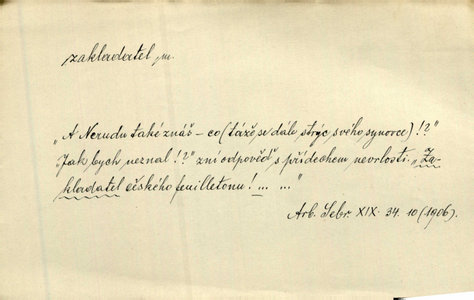 zakladatel, m.
„A Nerudu také znáš – co (táže se dále strýc svého synovce) !?"
„Jak bych neznal !?" zní odpověď s přídechem nevrlosti. „Za-
kladatel českého feuilletonu! ... ..."
Arb. Sebr. XIX. 34. 10 (1906).